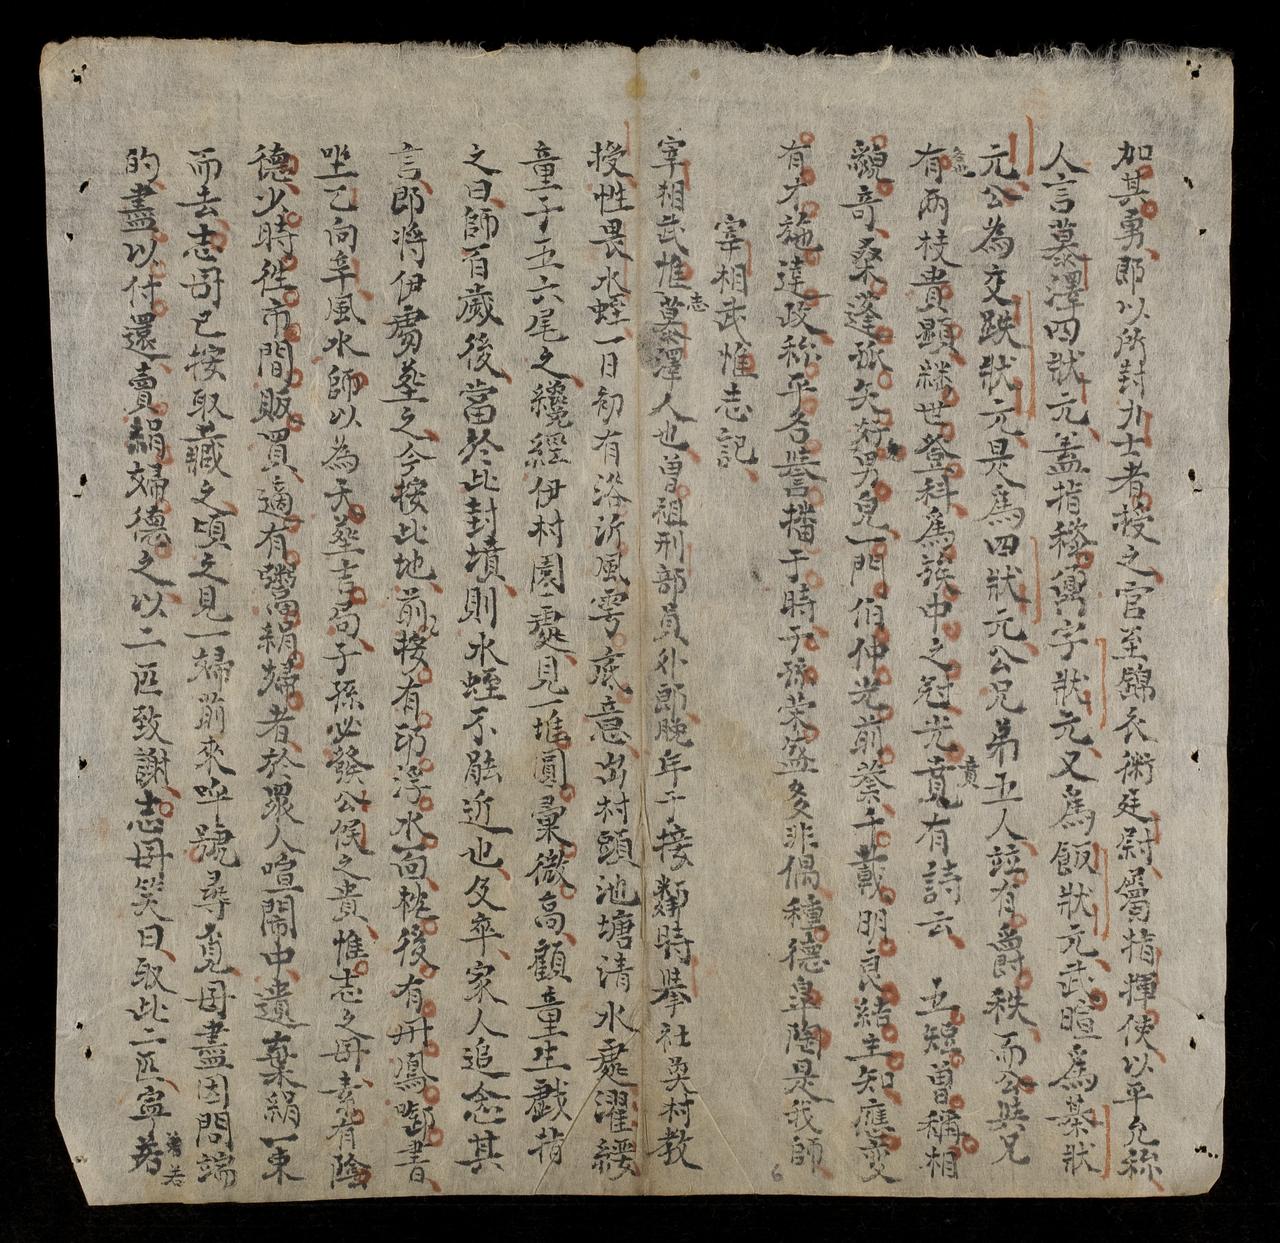 加其勇郎以所封力士者授之官至錦衣術廷尉屬指揮使以平允称
人言慕澤四状元盖指稳齊字状元又爲飯状元武暄爲棊状
元公為交跌状元是爲四状元公兄弟五人竝有爵秩而公與兄
有兩枝貴顯継世登科爲族中之冠光賁有詩云 五短曾稱相
貌竒桑蓬弧矢好男皃一門伯仲光前葵千載明良結主知應变
有才施達政称平名譽播于時子孫荣盛多非偶種德皐陶是我師
宰相武惟志記
宰相武惟志慕澤人也曽祖刑部員外郎晚年于接鄰時擧社奠村教
授性畏水蛭一日初有浴沂風雩底意出村頭池塘清水處濯纓
童子五六尾之纔經伊村園處見一堆圓稾微高顧童生戱指
之曰師百歲後當於此封墳則水蛭不能近也及卒家人追念其
言即将伊処葬之今按此地前接有印浮水向枕後有丹鳳啣書
坐乙向辛風水師以為天葬吉局子孫必發公侯之貴惟志之母素有陰
德少時徃市間販買適有鬻絹婦者於衆人喧鬧中遺棄絹一束
而去志母已按取藏之頃之見一婦前來呼號尋覓母盡因問端
的盡以付還賣絹婦德之以二匹致謝志母笑曰取此二匹寧若